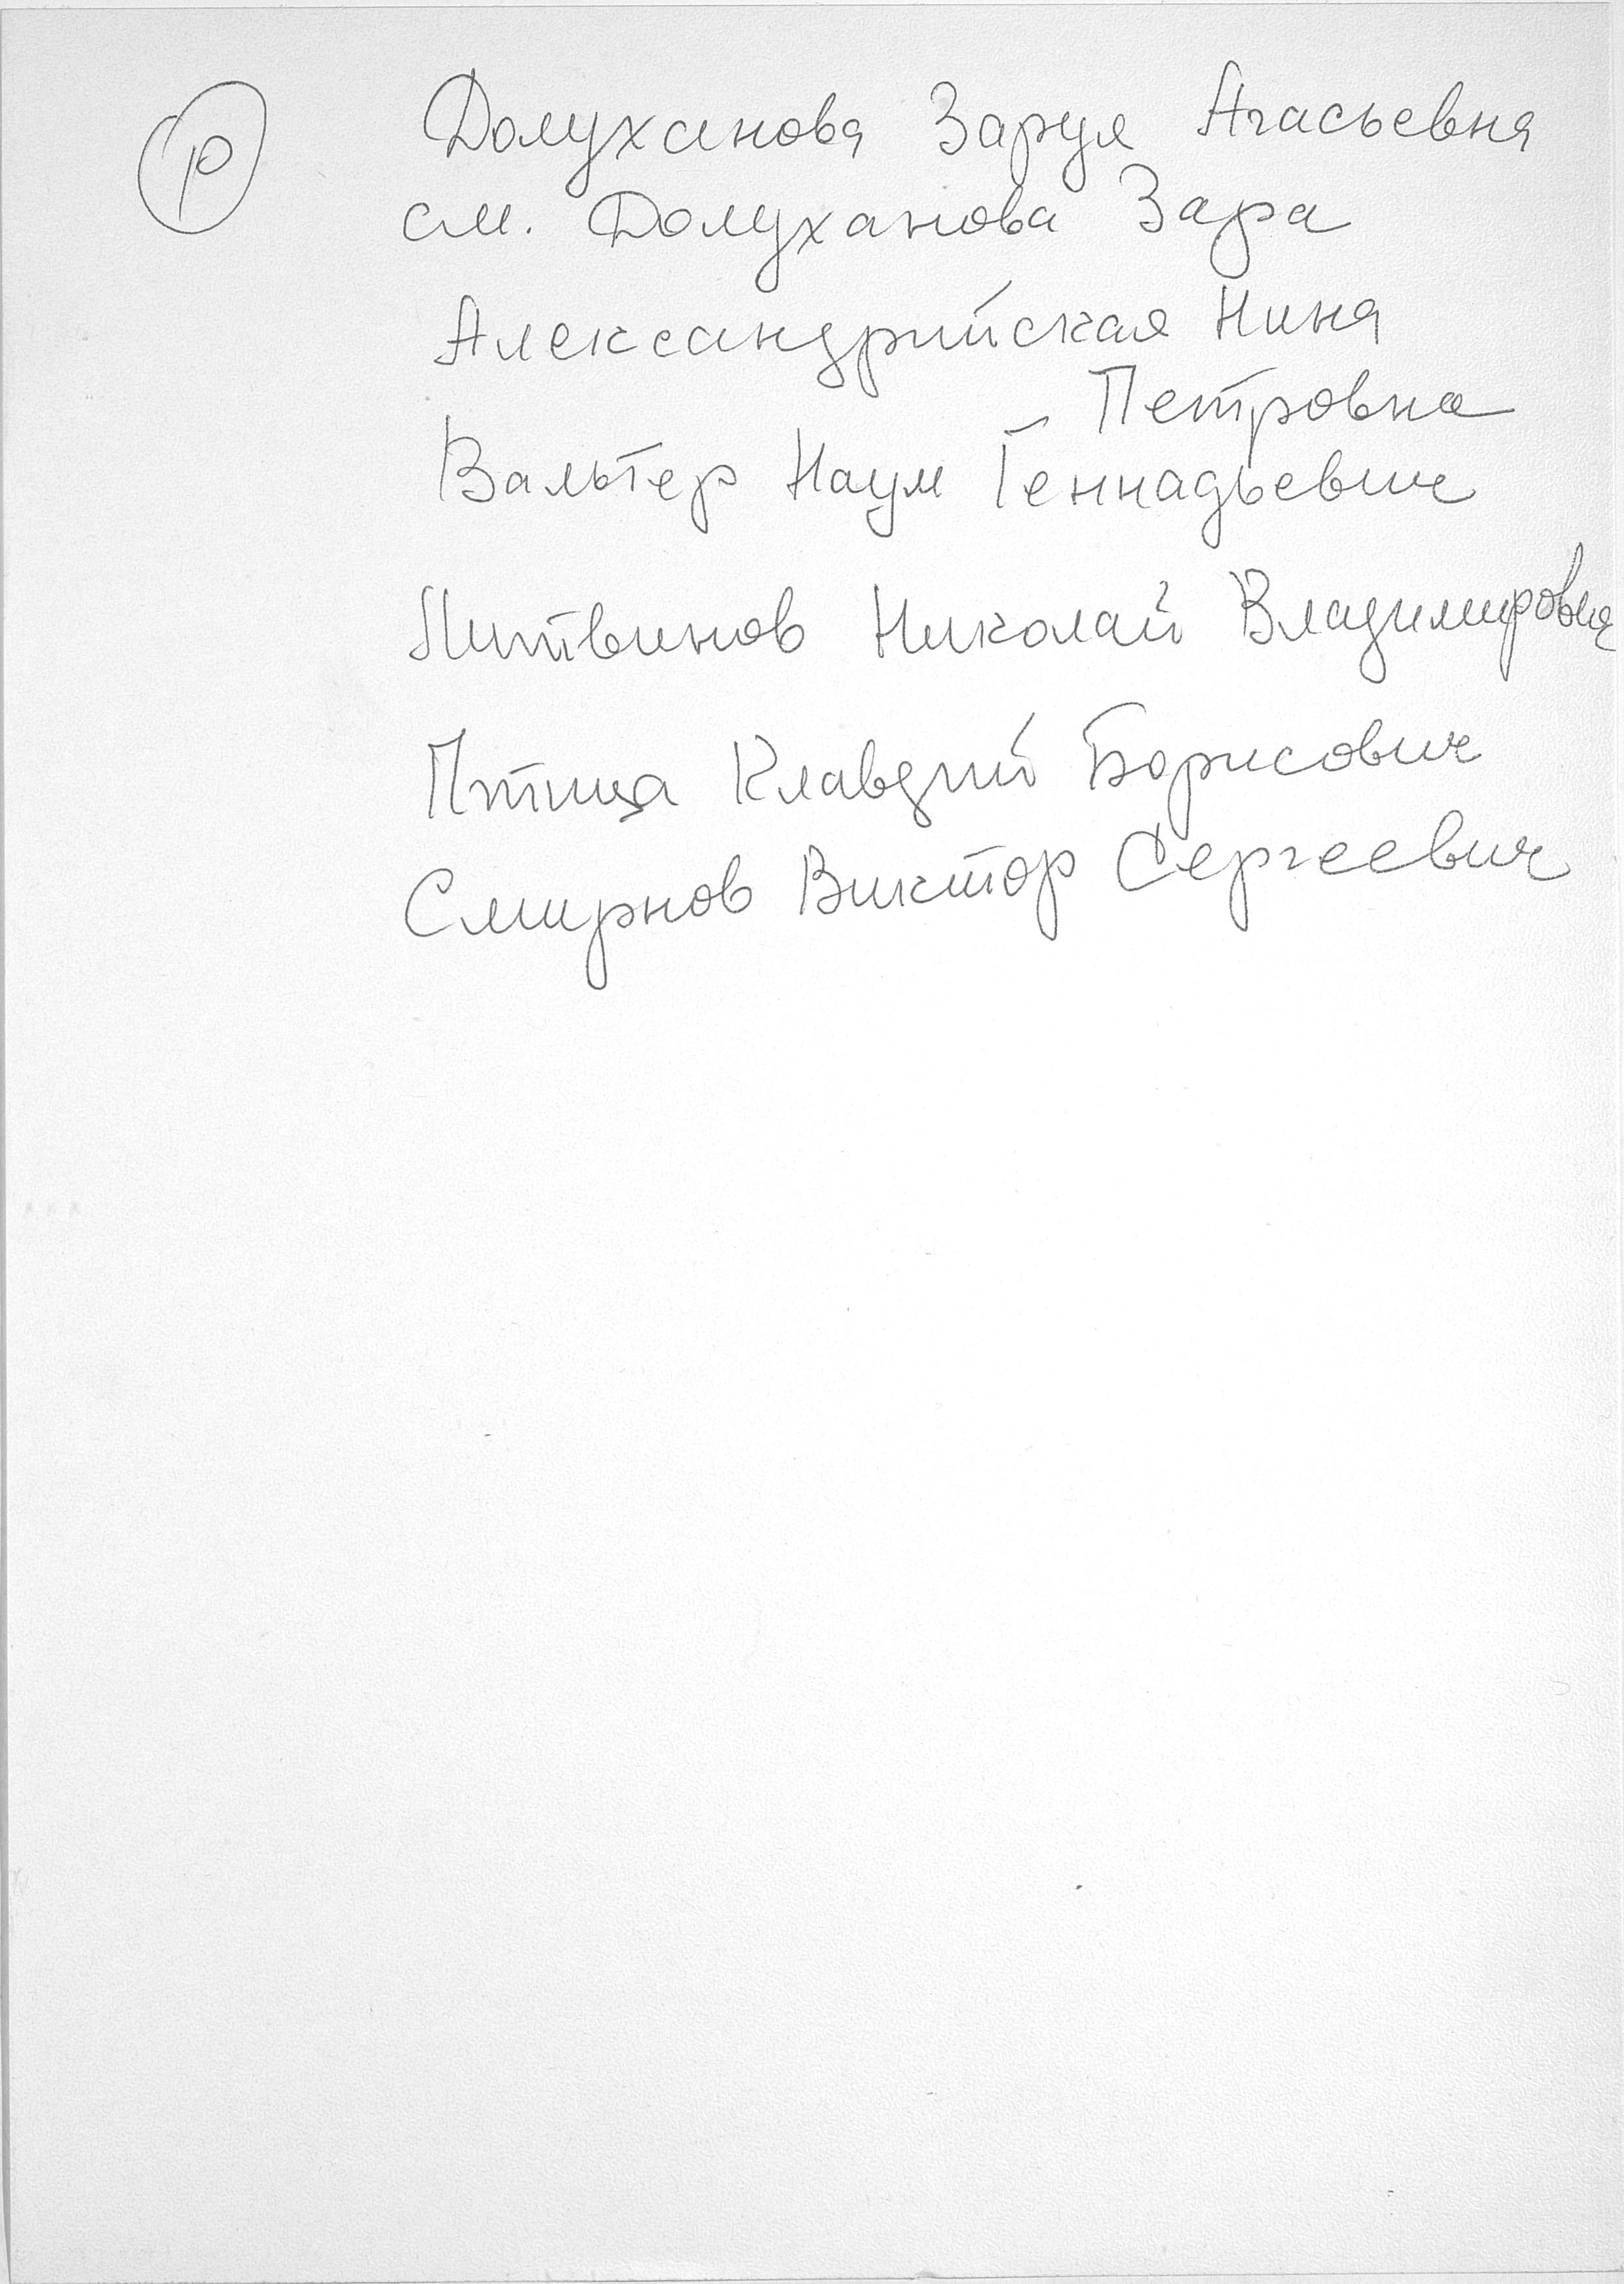 р
Долуханова Заруя Агасьевна
см. Долуханова Зара
Александрийская Нина
Петровна
Вальтер Наум Геннадьевич
Литвинов Николай Владимирович
Птица Клавдий Борисович
Смирнов Виктор Сергеевич